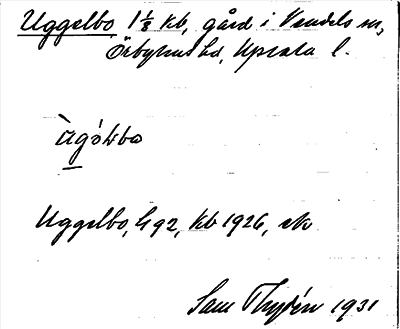 Uggelbo 1 1/8 kb, gård i Vendels sn,
Örbyhus hd, Upsala l.
Uggelbo, G 92, kb 1926, ek
Sam Thyrén 1931